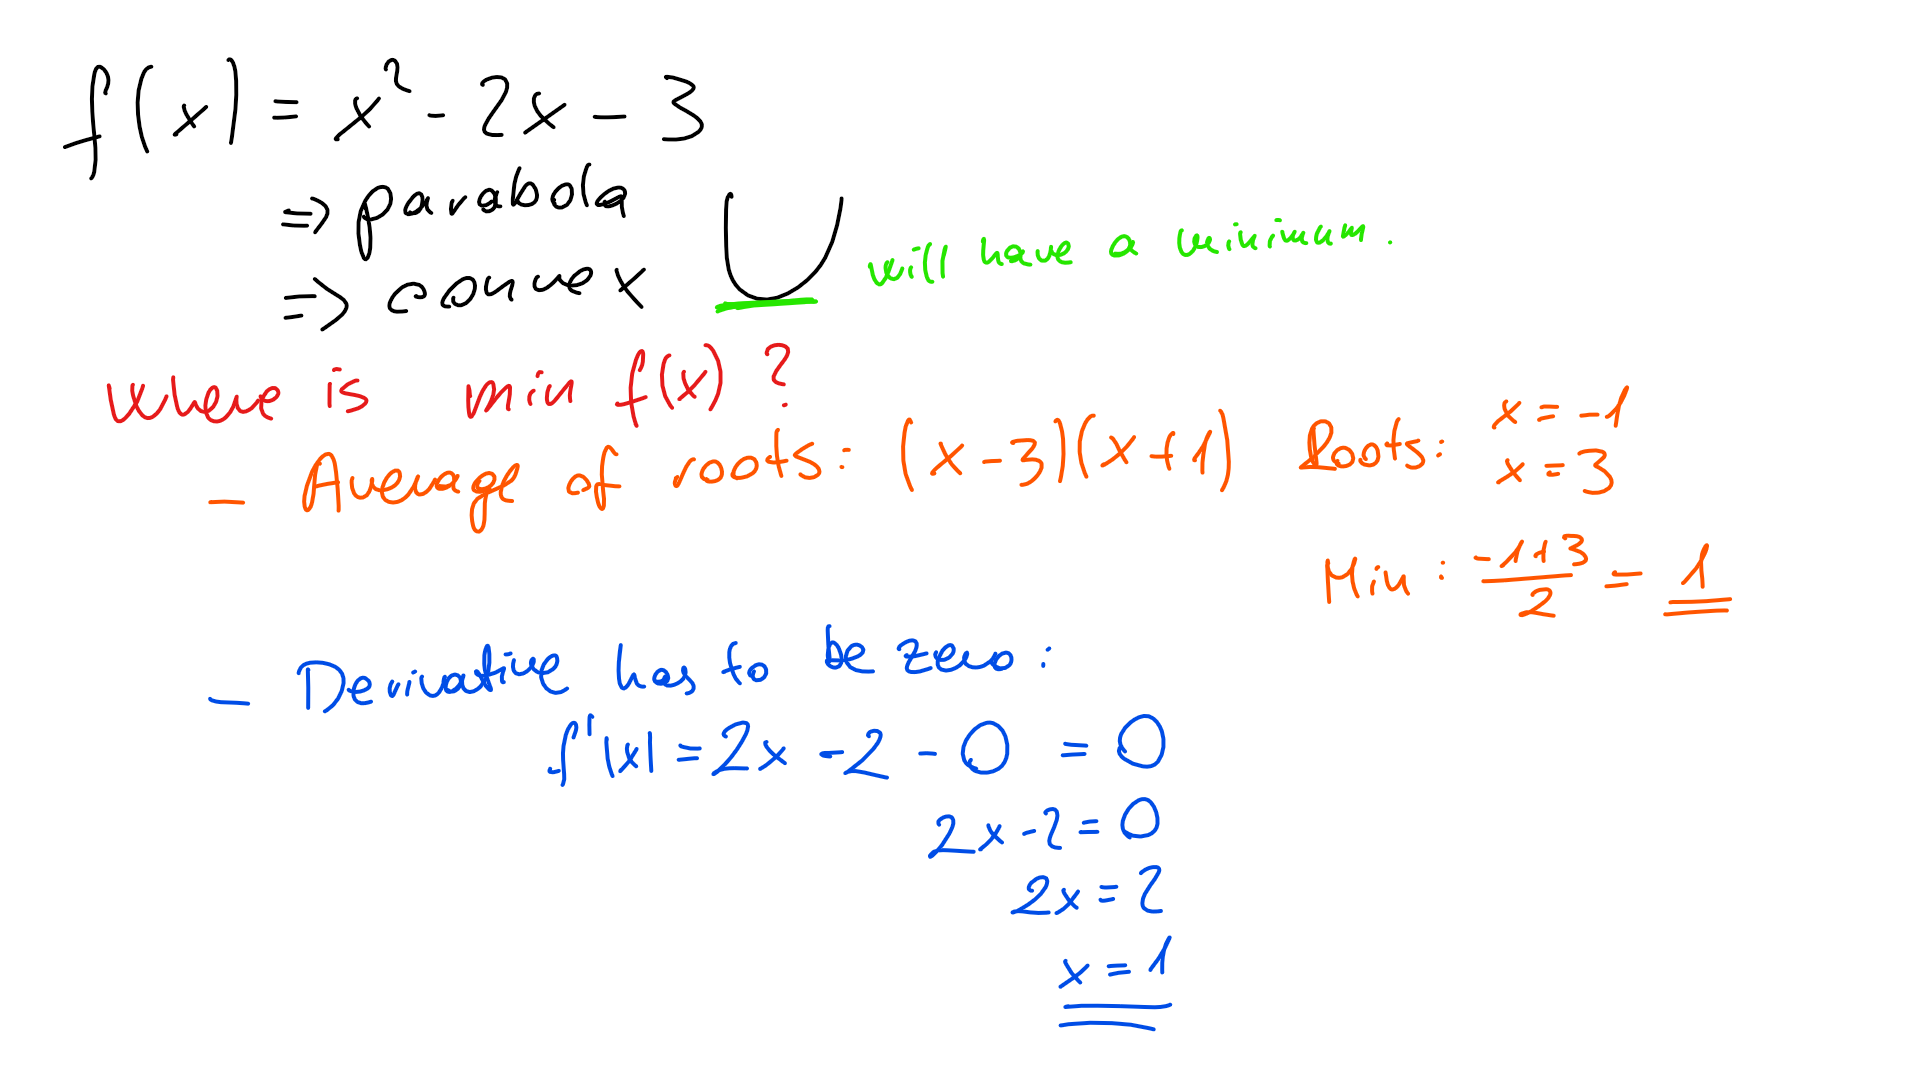 f(x) = x² - 2x - 3
=> parabola
=> convex
will have a minimum.
Where is min f(x) ?
- Average of roots: (x-3)(x+1) Roots: x = -1
x = 3
Min: \frac{-1+3}{2} = 1
- Derivative has to be zero:
f'(x) = 2x - 2 - 0 = 0
2x - 2 = 0
2x = 2
x = 1